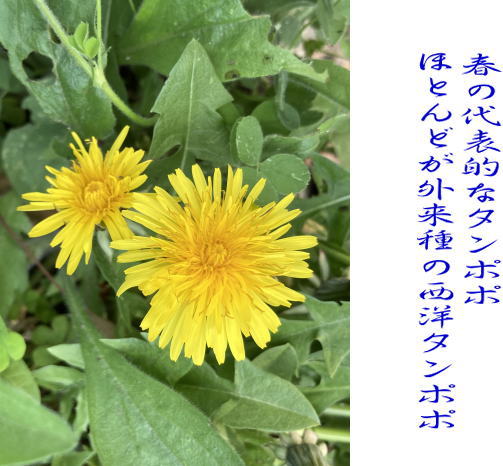 春の代表的なタンポポ
ほとんどが外来種の西洋タンポポ